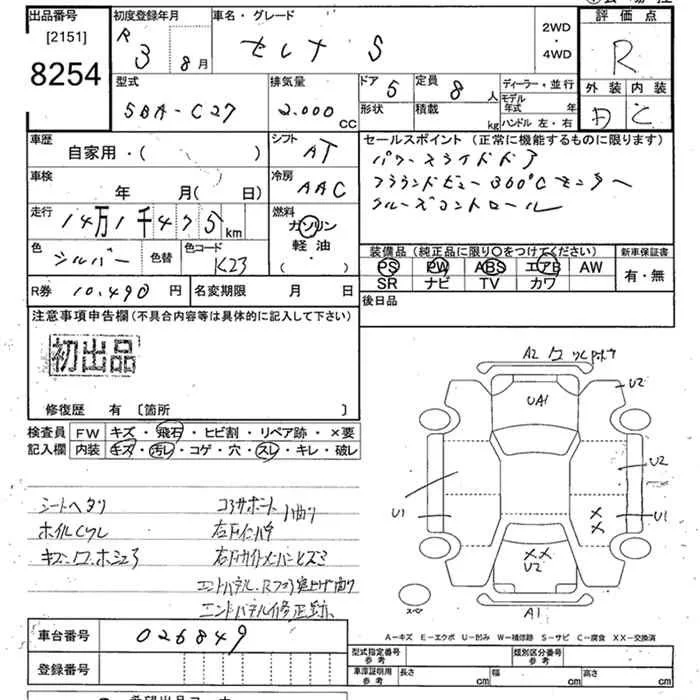 出品番号
[2151]
8254
初度登録年月
R 3 8月
車名・グレード
セレナ S
2WD
・
4WD
評価点
R
外装 内装
D C
型式
5BA-C27
排気量
2.000 CC
ドア 5
形状
定員 8 人
積載 kg
ディーラー・並行
モデル年式 年
ハンドル 左・右
車歴
自家用・( )
シフト
AT
セールスポイント (正常に機能するものに限ります)
パワースライドドア
アラウンドビュー360°Cモニター
クルーズコントロール
車検
年 月( 日)
冷房
AAC
走行 14万1千475km
燃料
ガソリン
軽油
( ・ )
色 シルバー 色替 色コード K23
装備品 (純正品に限り○をつけてください)
PS PW ABS エアB AW
SR ナビ TV カワ
新車保証書
有・無
R券 10,490 円
名変期限 月 日
後日品
注意事項申告欄(不具合内容等は具体的に記入して下さい)
初出品
修復歴 有 [箇所 ]
検査員記入欄
FW キズ・飛石・ヒビ割・リペア跡・×要
内装 キズ・汚レ・コゲ・穴・スレ・キレ・破レ
シートヘタリ
ホイルCクレ
コアサポート曲り
左右インパネ
エンドパネル修正跡
A2
U2
UA1
U2
U1
U1
XX
XX
U2
A1
スペア
A-キズ E-エクボ U-凹み W-補修跡 S-サビ C-腐食 XX-交換済
車台番号 026849
登録番号
型式指定番号
参考
類別区分番号
参考
車庫証明用
参考
長さ cm
幅 cm
高さ cm